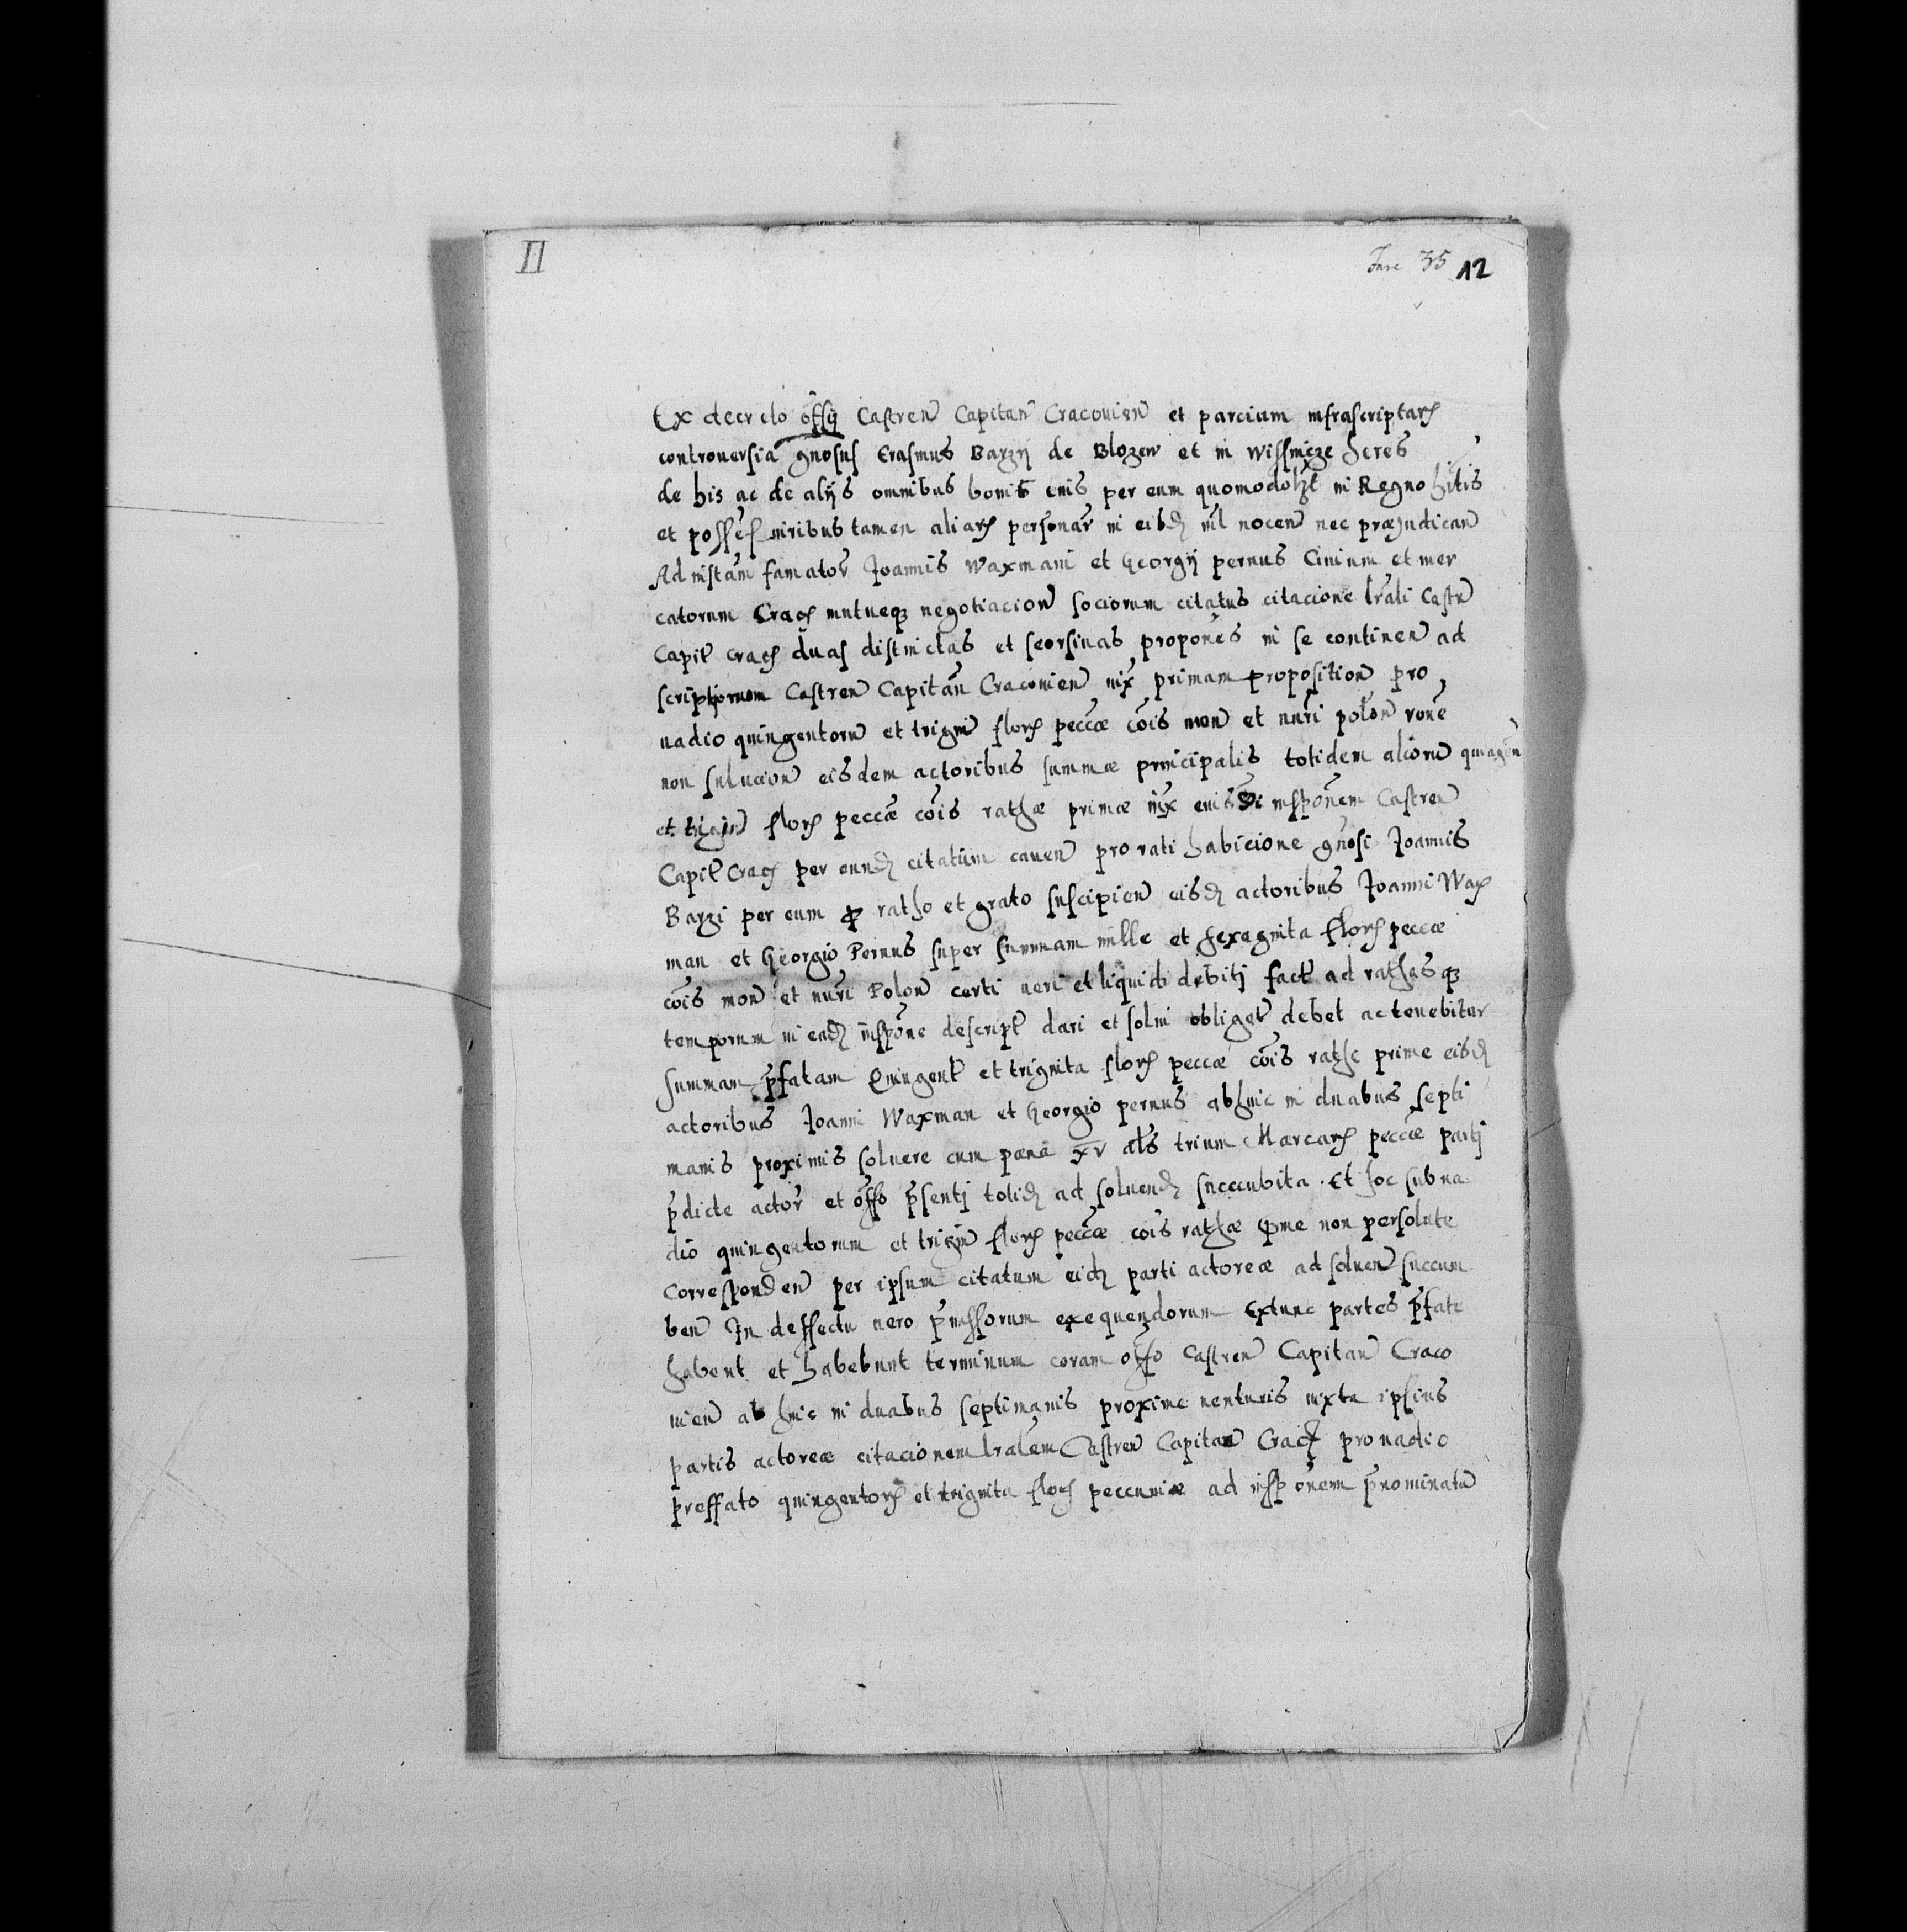 II
35 12
Ex decreto offi͞j Castren Capitan Cracouien et parcium infrascriptarʒ
controuersia gnosus Erasmus Barzij de Blozew et in Wissnicze heres
de his ac de alijs omnibus bonis eius per eum quomodolʒt in Regno h͞itis
et possess iuribus tamen aliarʒ personar͞ in eibdʒ n͞il nocen nec præjudican
Ad instan͞ famator͞ Joannis Waxmani et Georgij pernus Ciuium et mer
catorum Cracʒ mutueqʒ negotiacion sociorum citatus citacione l͞rali Castr
Capit͞ Cracʒ duas distinctas et seorsiuas propon͞es in se continen ad
Castren Capitan͞ Cracouien iux͞ primam proposition pro
uadio quingentorn et trigin͞ florʒ pecc͞æ co͞is mon et nu͞ri polon͞ ro͞ne
non solucion eisdem actoribus summæ principalis totidem aliorn quingen͞
et trigin͞ florʒ pecc͞æ co͞is rathæ primæ iux͞ eius inspo͞nem Castren
Capit͞ Cracʒ per eundʒ citatum cauen͞ pro rati habicione g͞nosi Joannis
Barzi per eum ꝓ ratho et grato suscipien eisdʒ actoribus Joanni Wax
man et Georgio Pernus super summam mille et sexaginta florʒ peccæ
co͞is mon et nu͞ri Polon certi ueri et liquidi debitj fact͞ ad rathasqʒ
temporum in eadʒ inspo͞ne descript͞ dari et solui obliget͞ debet ac tenebitur
summam p͞fatam Quingent͞ et triginta florʒ peccæ co͞is rathe prime eisdʒ
actoribus Joanni Waxman et Georgio pernus abhinc in duabus septi
manis proximis soluere cum pæna xv al͞s trium Marcarʒ pecc͞æ partj
p͞dicte actor͞ et off͞o p͞sentj totidʒ ad soluendʒ succubita. Et hoc sub ua
dio quingentorum et trigin͞ florʒ pecc͞æ co͞is rathæ p͞me non persolute
corresponden per ipsum citatum eidʒ parti actoreæ ad soluen succum
ben In deffectu uero p͞missorum exequendorum Extunc partes p͞fate
habent et habebunt terminum coram off͞o Castren Capitan Craco
uien ab hinc in duabus septimanis proxime uenturis iuxta ipsius
partis actoreæ citacionem l͞ralem Castren Capitan Cracʒ pro uadio
preffato quingentorʒ et triginta florʒ peccuniæ ad inspo͞nem p͞nominatu